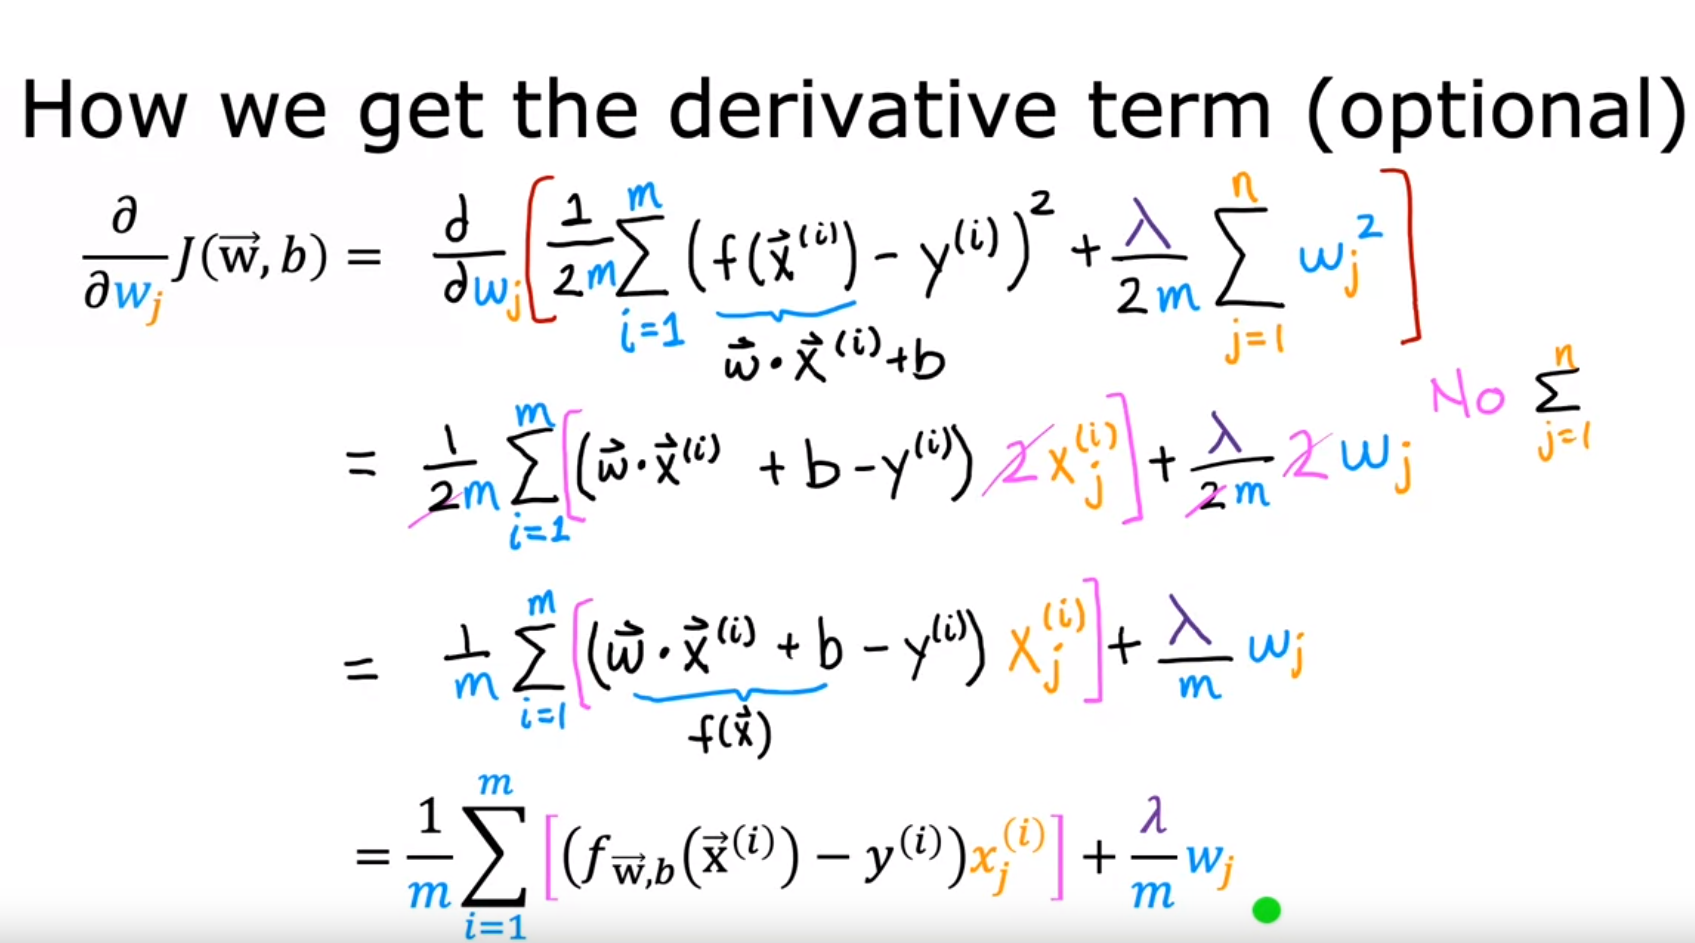 How we get the derivative term (optional)
∂/∂w_j J(w⃗, b) = d/dw_j [ 1/2m Σ_{i=1}^{m} (f(x⃗^(i)) − y^(i))^2 + λ/2m Σ_{j=1}^{n} w_j^2 ]
w⃗ · x⃗^(i) + b
No Σ_{j=1}^{n}
= 1/2m Σ_{i=1}^{m} [ (w⃗ · x⃗^(i) + b − y^(i)) 2 x_j^(i) ] + λ/2m 2 w_j
= 1/m Σ_{i=1}^{m} [ (w⃗ · x⃗^(i) + b − y^(i)) x_j^(i) ] + λ/m w_j
f(x⃗)
= 1/m Σ_{i=1}^{m} [ (f_{w⃗,b}(x⃗^(i)) − y^(i)) x_j^(i) ] + λ/m w_j